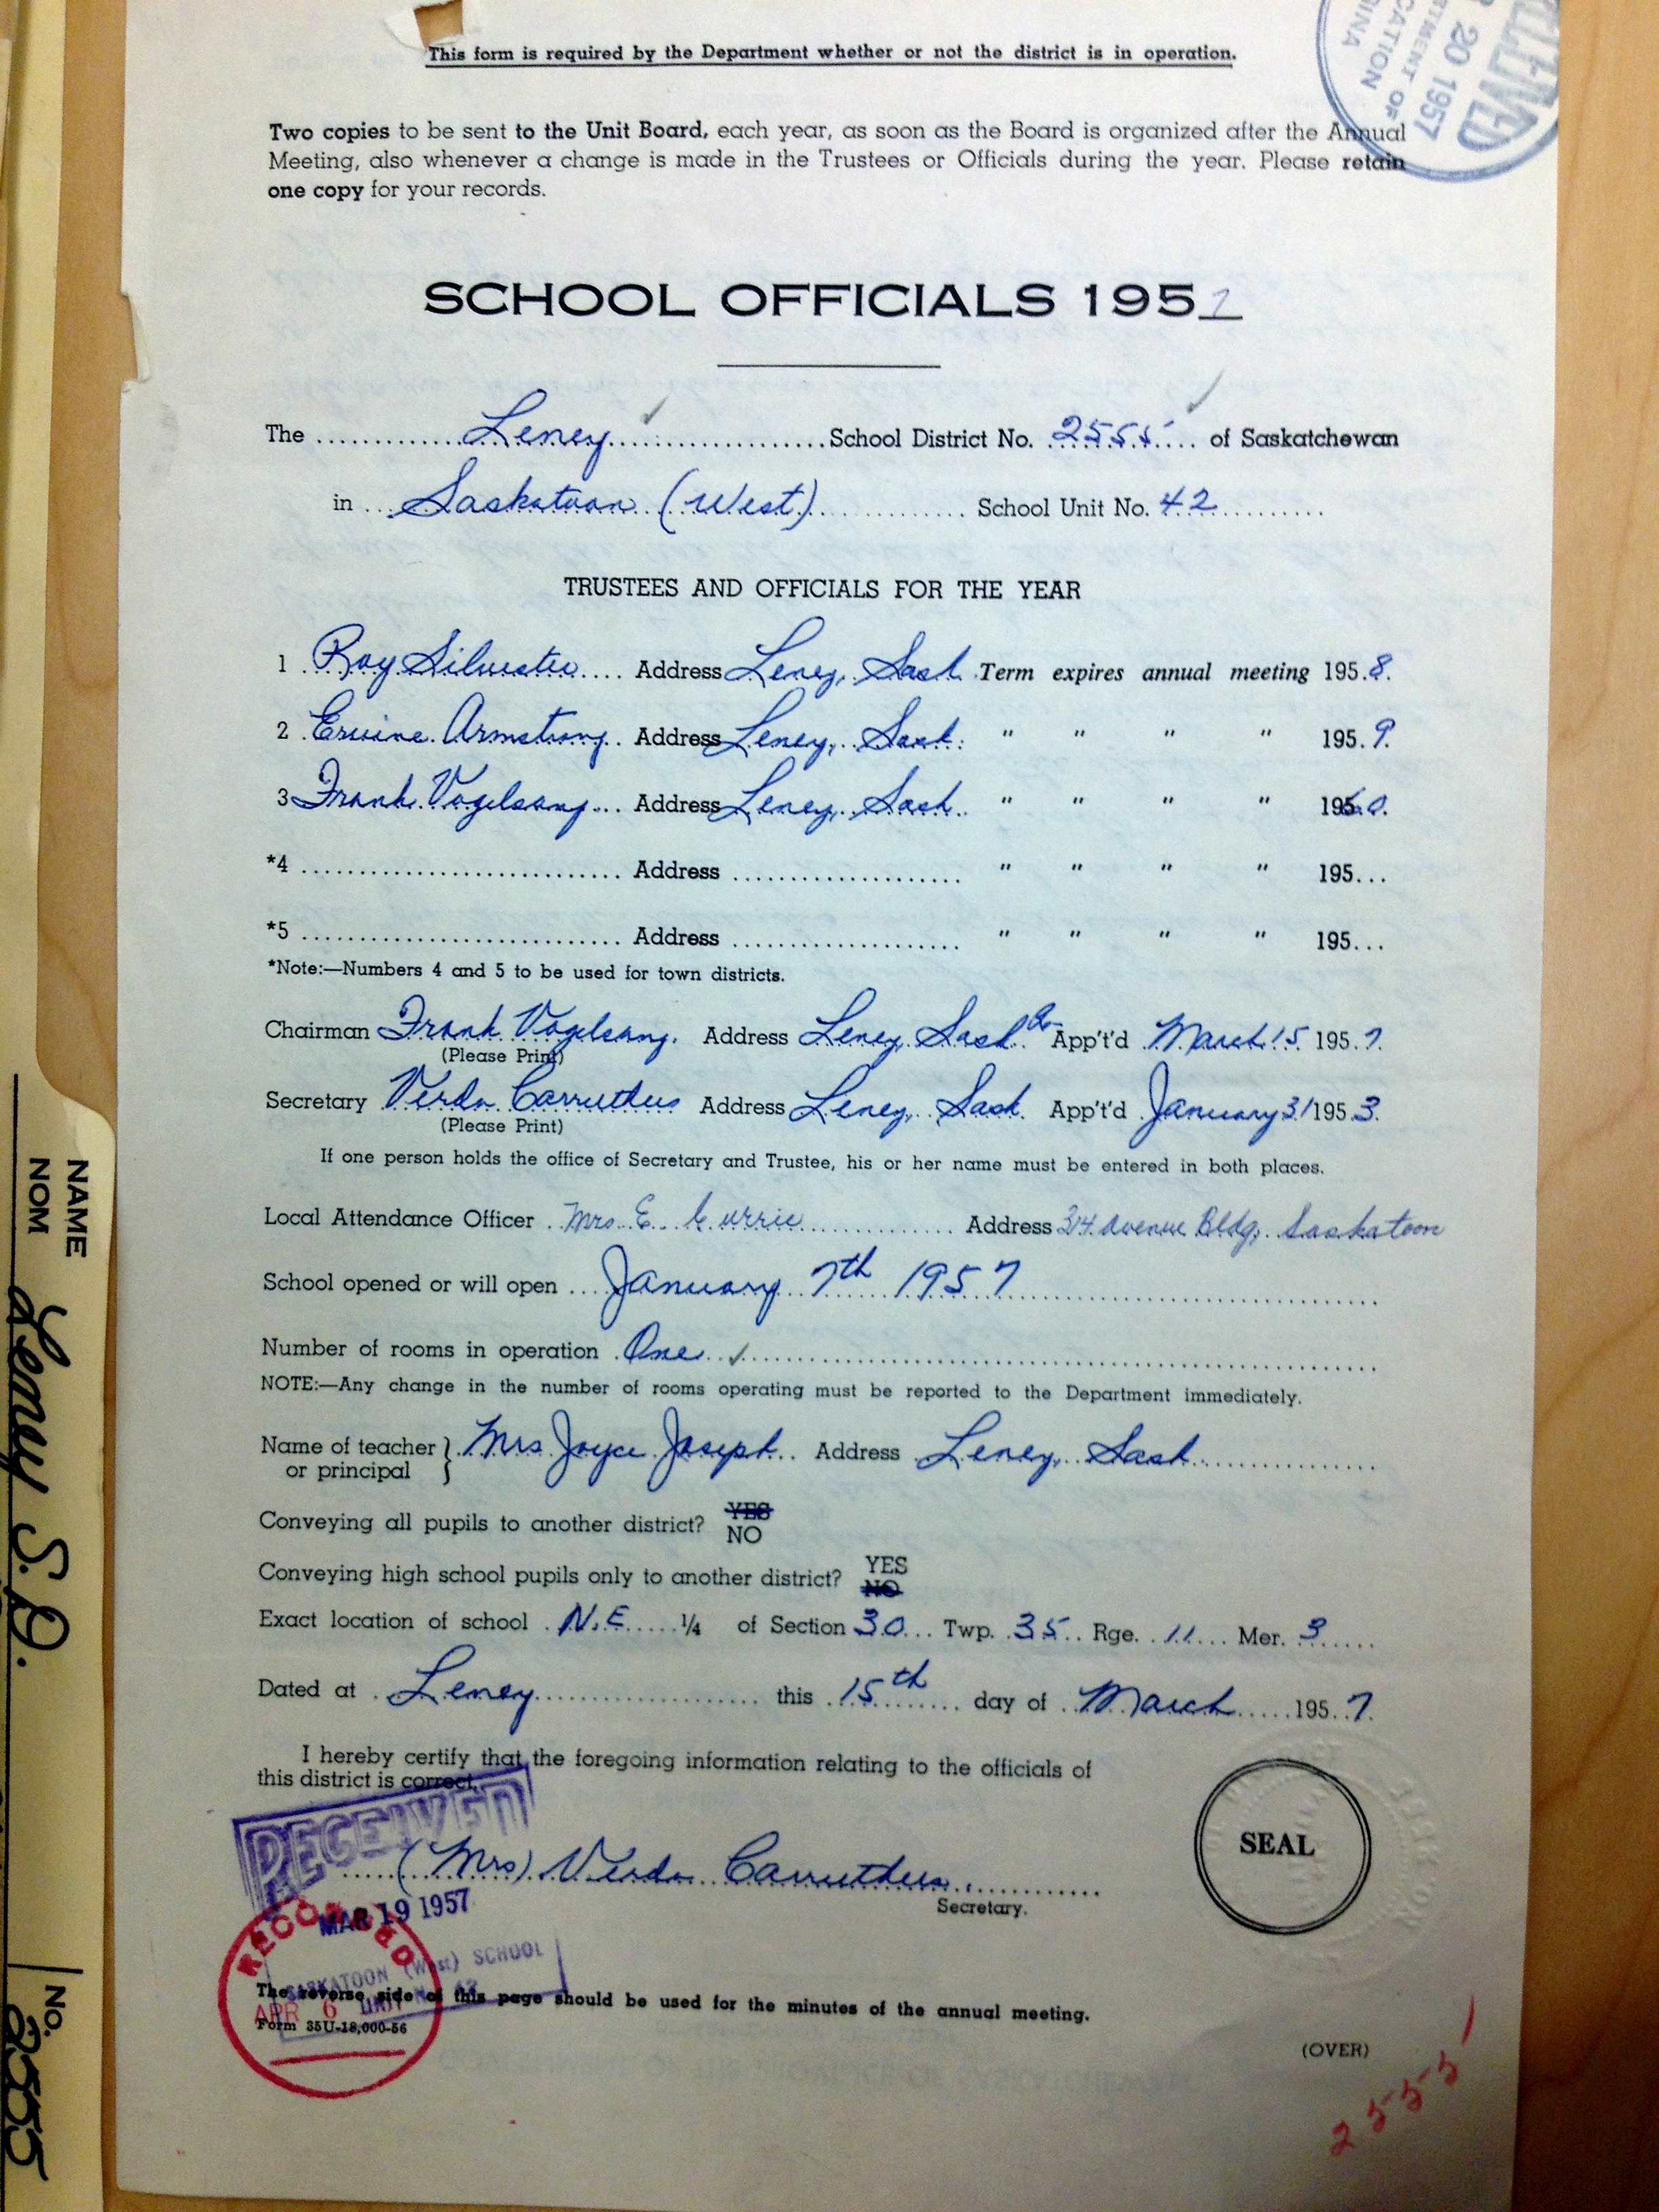 This form is required by the Department whether or not the district is in operation.
20 1957
Two copies to be sent to the Unit Board, each year, as soon as the Board is organized after the Annual
Meeting, also whenever a change is made in the Trustees or Officials during the year. Please retain
one copy for your records.
SCHOOL OFFICIALS 1957
The Leney School District No. 2555 of Saskatchewan
in Saskatoon (West) School Unit No. 42
TRUSTEES AND OFFICIALS FOR THE YEAR
1 Roy Silvester Address Leney, Sask Term expires annual meeting 1958.
2 Ervine Armstrong Address Leney, Sask. " " " " 1959.
3 Frank Vogelsang Address Leney, Sask. " " " " 1960.
*4 Address " " " " 195...
*5 Address " " " " 195...
*Note:—Numbers 4 and 5 to be used for town districts.
Chairman Frank Vogelsang. Address Leney, Sask. App't'd March 15 1957.
(Please Print)
Secretary Verda Carruthers Address Leney, Sask. App't'd January 31 1953.
(Please Print)
If one person holds the office of Secretary and Trustee, his or her name must be entered in both places.
Local Attendance Officer Mrs. E. Currie Address 314 Avenue Bldg, Saskatoon
School opened or will open January 7th 1957
Number of rooms in operation One ✓
NOTE:—Any change in the number of rooms operating must be reported to the Department immediately.
Name of teacher } Mrs Joyce Joseph Address Leney, Sask
or principal
Conveying all pupils to another district? YES
NO
Conveying high school pupils only to another district? YES
NO
Exact location of school N.E. 1/4 of Section 30 Twp. 35 Rge. 11 Mer. 3
Dated at Leney this 15th day of March 1957.
I hereby certify that the foregoing information relating to the officials of
this district is correct.
RECEIVED
(Mrs) Verda Carruthers
Secretary.
SEAL
MAR 19 1957
RECORDED
SASKATOON (West) SCHOOL
UNIT No. 42
APR 6
The reverse side of this page should be used for the minutes of the annual meeting.
Form 35U-18,000-56
(OVER)
2555
NAME
NOM
Leney S.D.
NO.
2555